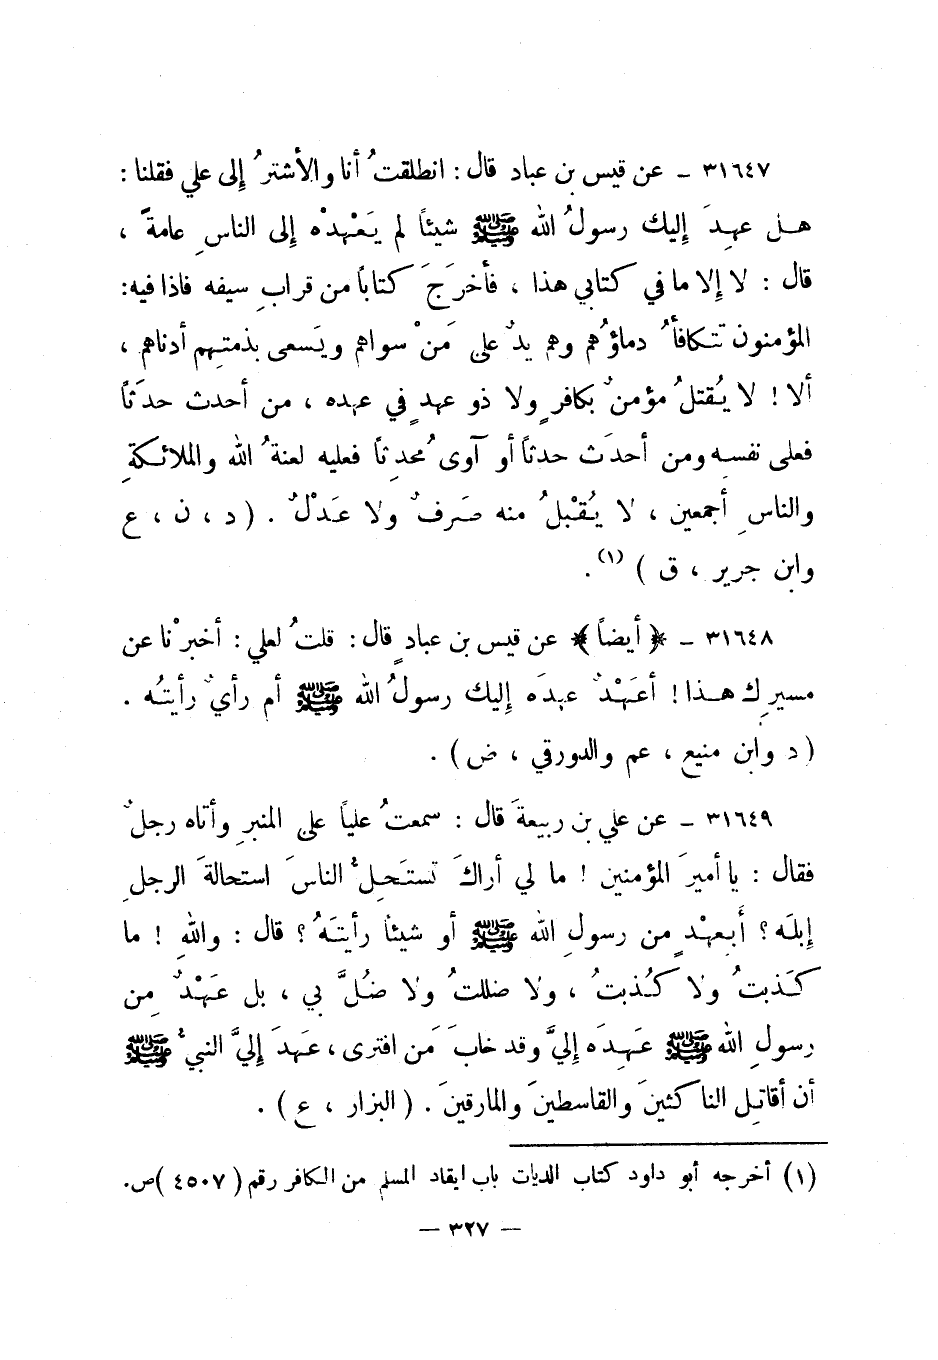 ٣١٦٤٧ ـ عن قيس بن عباد قال : انطلقتُ أنا والأشترُ إلى علي فقلنا :
هـل عهِدَ إليك رسولُ الله ﷺ شيئاً لم يَعْهدْه إلى الناسِ عامةً ،
قال : لا إلا ما في كتابي هذا ، فأخرَجَ كتاباً من قرابِ سيفه فاذا فيه:
المؤمنون تتكافأُ دماؤُهم وهم يدٌ على مَنْ سواهم ويَسعى بذمتِهم أدناهم ،
ألا ! لا يُقتلُ مؤمنٌ بكافرٍ ولا ذو عهدٍ في عهده ، من أحدث حدَثاً
فعلى نفسه ومن أحدَث حدثاً أو آوى مُحدِثاً فعليه لعنةُ الله والملائكةِ
والناسِ أجمعين ، لا يُقْبلُ منه صَرفٌ ولا عَدْلٌ . ( د ، ن ، ع
وابن جرير ، ق ) (١).
٣١٦٤٨ ـ ﴿ أيضاً ﴾ عن قيس بن عبادٍ قال : قلتُ لعلي : أخبرْنا عن
مسيرِك هـذا ! أعَهْدٌ عهدَه إليك رسولُ الله ﷺ أم رأيٌ رأيتُه .
( د وابن منيع ، عم والدورقي ، ض ) .
٣١٦٤٩ ـ عن علي بن ربيعةَ قال : سمعتُ علياً على المنبرِ وأتاه رجلٌ
فقال : يا أميرَ المؤمنين ! ما لي أراكَ تستَحِلُّ الناسَ استحالةَ الرجلِ
إبلَه ؟ أَبِعهْدٍ من رسولِ الله ﷺ أو شيئاً رأيتَهُ ؟ قال : واللهِ ! ما
كَذبتُ ولا كُذبتُ ، ولا ضللتُ ولا ضُلَّ بي ، بل عَهْدٌ مِن
رسولِ الله ﷺ عَهِدَه إليَّ وقد خابَ مَن افترى ، عَهدَ إليَّ النبيُّ ﷺ
أن أقاتِل الناكثينَ والقاسطينَ والمارقينَ . ( البزار ، ع ) .
(١) أخرجه أبو داود كتاب الديات باب ايقاد المسلم من الكافر رقم ( ٤٥٠٧ )ص.
— ٣٢٧ —